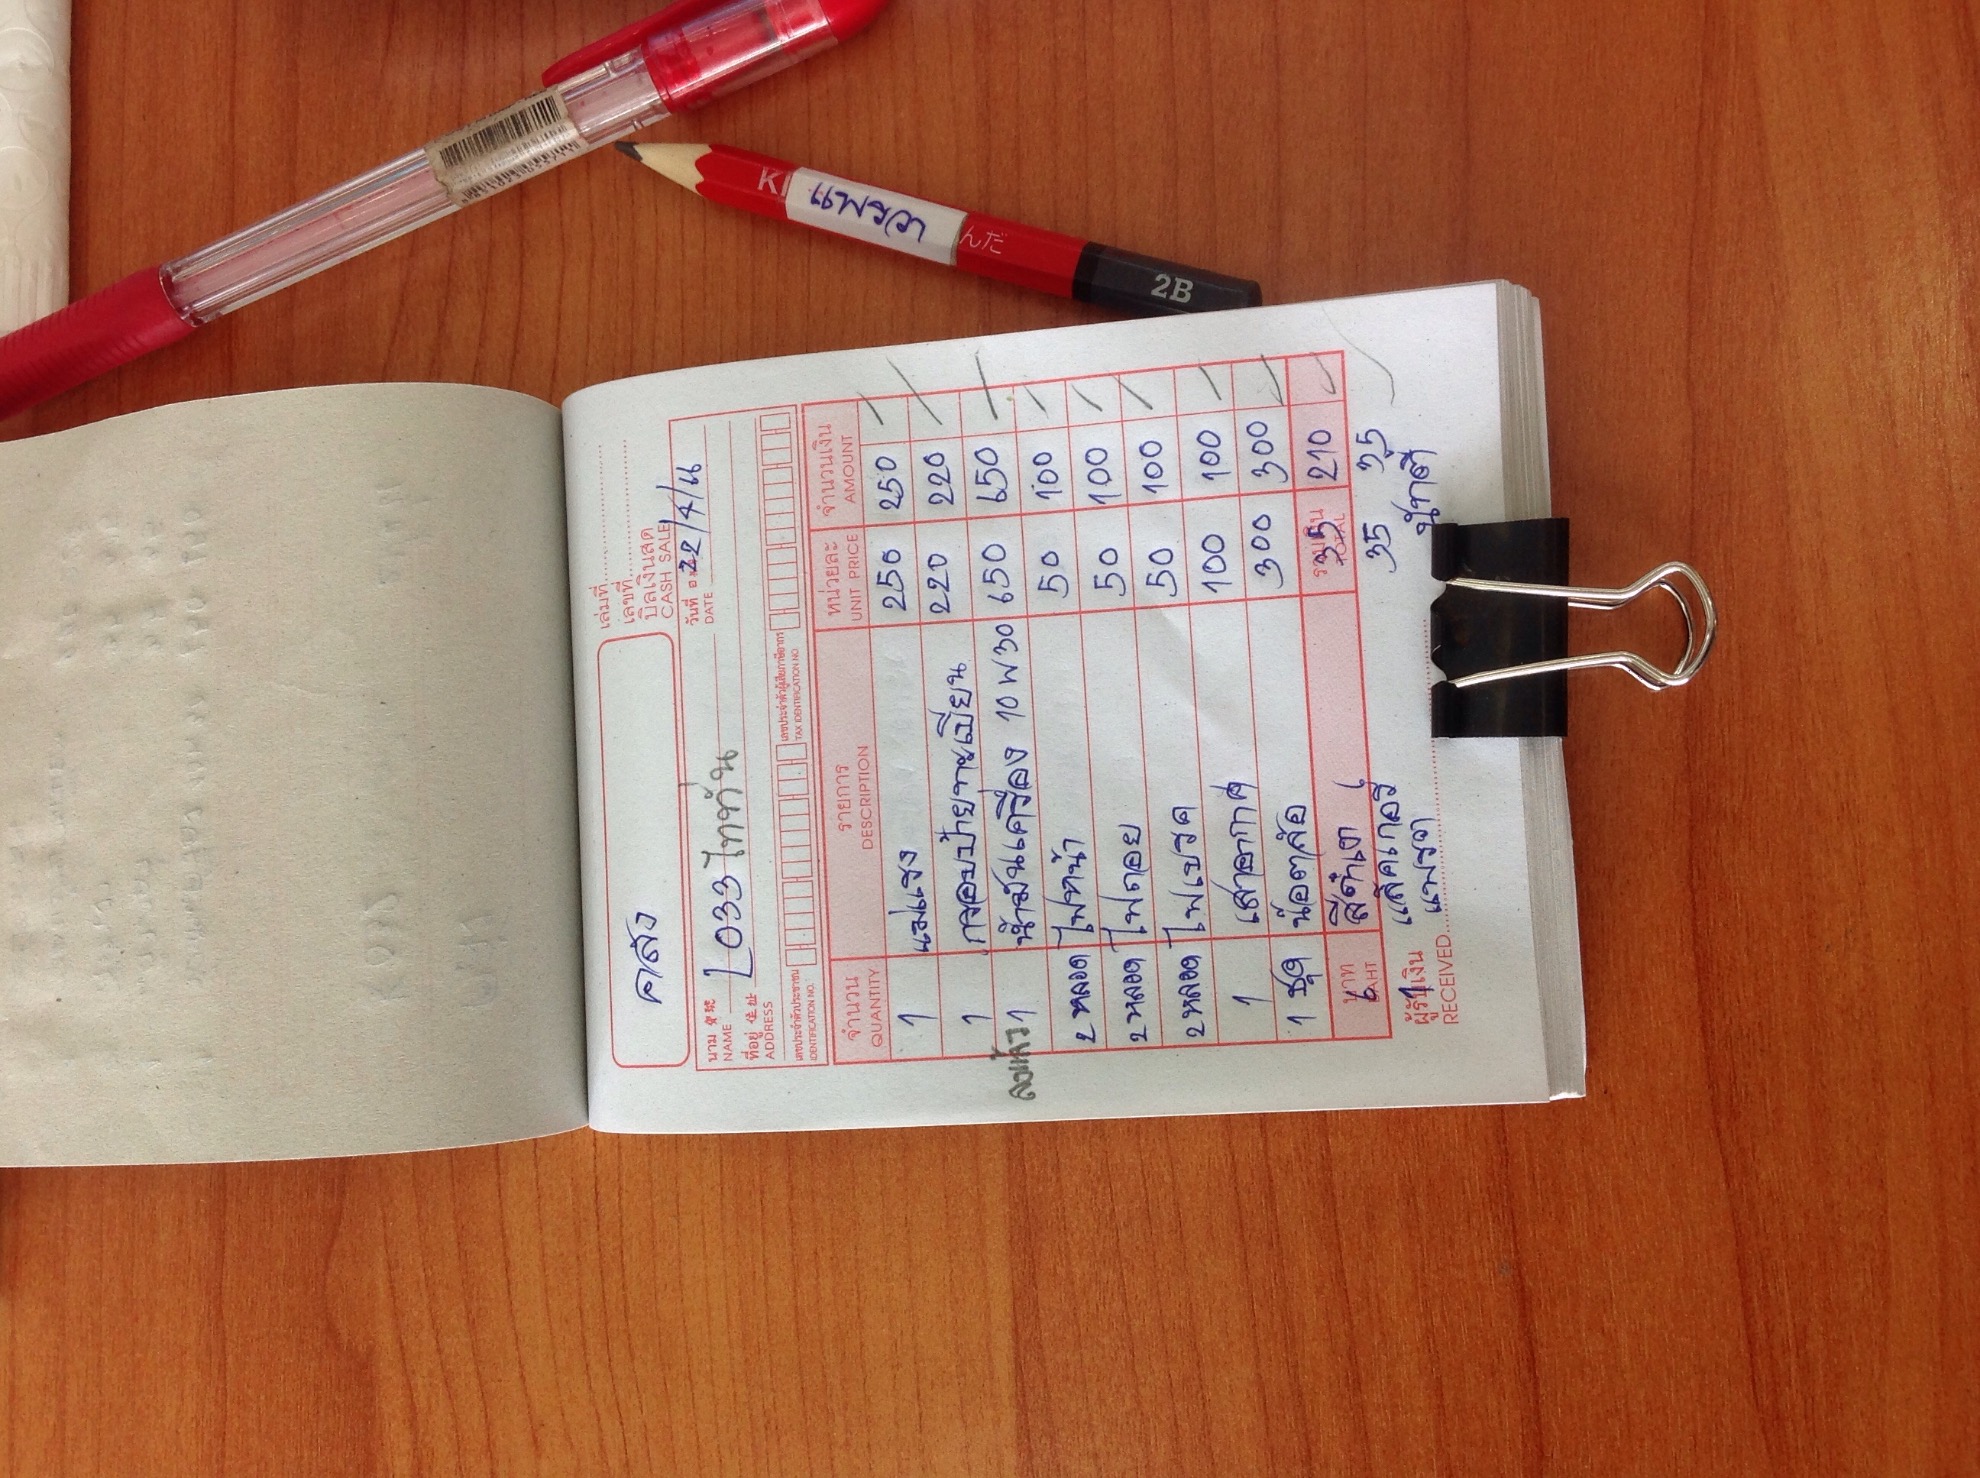 แพรวา
んだ
2B
เล่มที่
เลขที่
บิลเงินสด
CASH SALE
คลัง
วันที่ 22/4/๖๖
DATE
นาม L033 ไททัน
NAME
ที่อยู่ 住址
ADDRESS
เลขประจำตัวประชาชน เลขประจำตัวผู้เสียภาษีอากร
IDENTIFICATION NO. TAX IDENTIFICATION NO.
จำนวน รายการ หน่วยละ จำนวนเงิน
QUANTITY DESCRIPTION UNIT PRICE AMOUNT
1 แม่แรง 250 250
1 กรอบป้ายทะเบียน 220 220
ลงแล้ว 1 น้ำมันเครื่อง 10W30 650 650
2 หลอด ไฟหน้า 50 100
2 หลอด ไฟถอย 50 100
2 หลอด ไฟเบรค 50 100
1 เสาอากาศ 100 100
1 ชุด น๊อตล้อ 300 300
6 สีดำเงา 35 210
บาท รวมเงิน
BAHT TOTAL
1 แล๊คเกอร์ 35 35
ผู้รับเงิน
RECEIVED